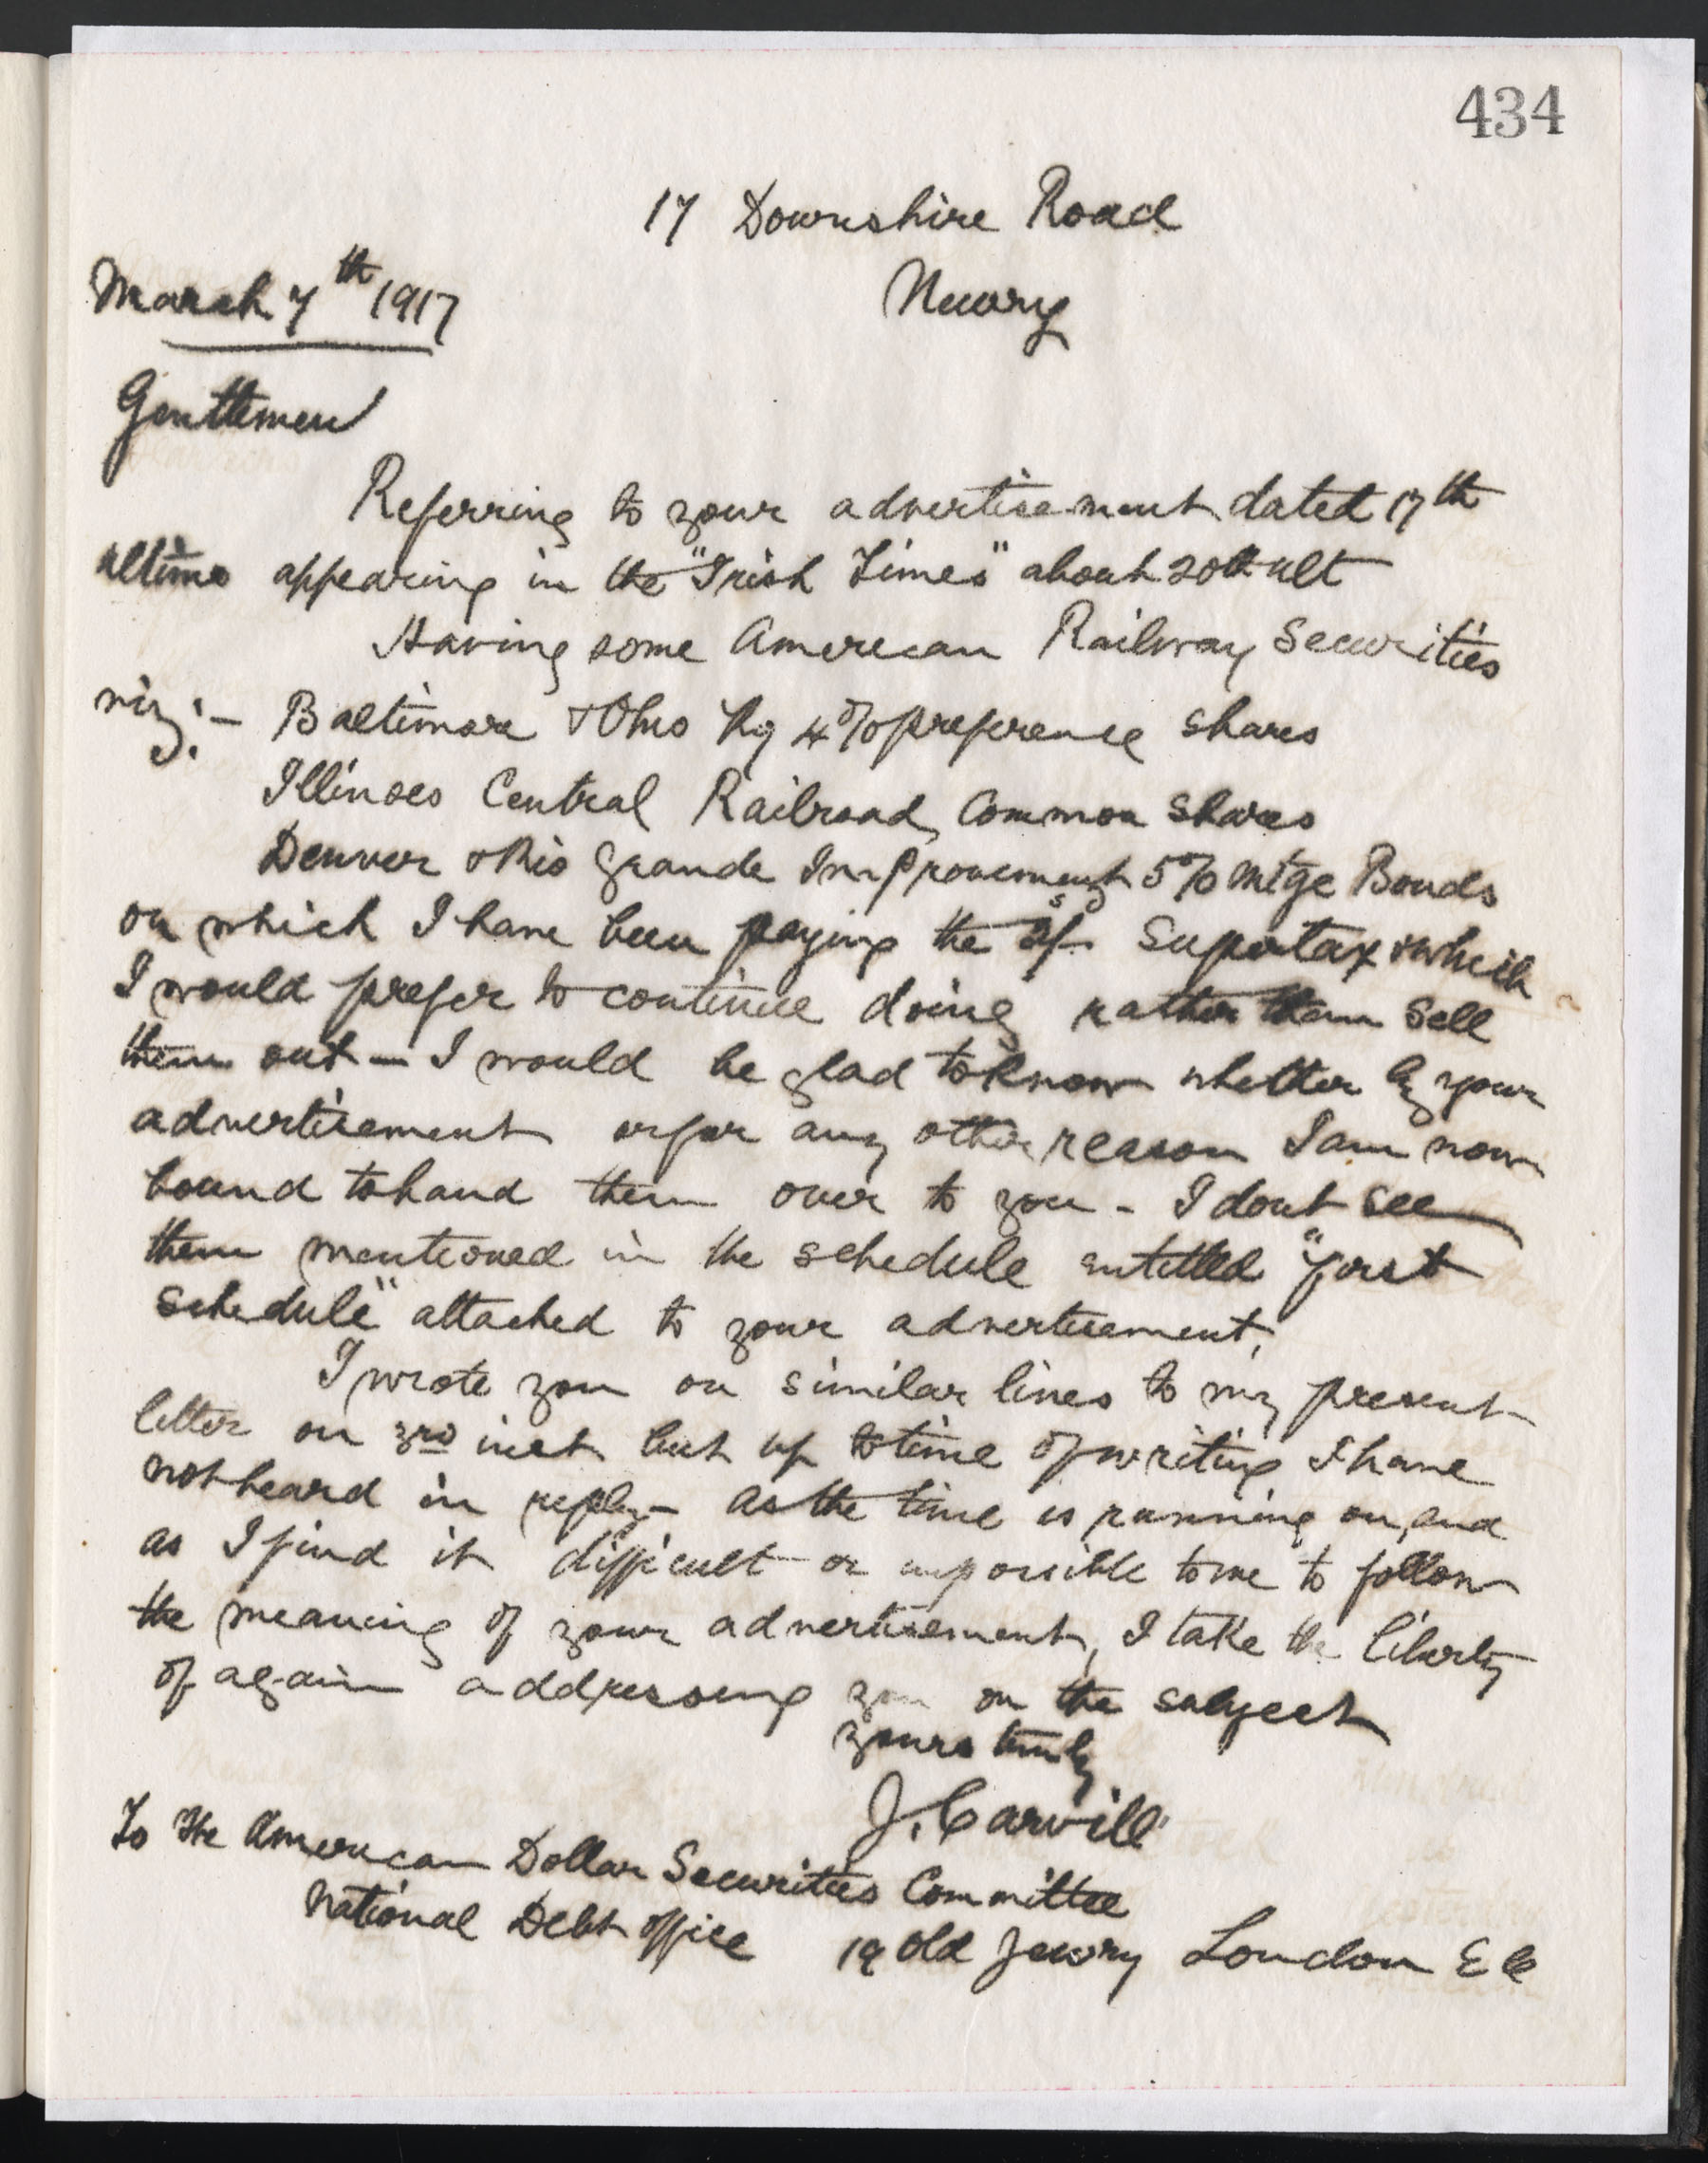 434
17 Downshire Road
Newry
March 7th 1917
Gentlemen
Referring to your advertisement dated 17th
ultimo appearing in the "Irish Times" about 20th ult
Having some American Railway Securities
viz:- Baltimore & Ohio Ry 4% preference shares
Illinois Central Railroad Common Shares
Denver & Rio Grande Improvement 5% Mtge Bonds
on which I have been paying the 2/- Supertax & which
I would prefer to continue doing rather than sell
them out - I would be glad to know whether by your
advertisement or for any other reason I am now
bound to hand them over to you - I dont see
them mentioned in the schedule entitled "first
schedule" attached to your advertisement.
I wrote you on similar lines to my present
letter on 3rd inst but up to time of writing I have
not heard in reply - As the time is running on, and
as I find it difficult or impossible to me to follow
the meaning of your advertisement, I take the liberty
of again addressing you on the subject
yours truly
J. Carvill
To The American Dollar Securities Committee
National Debt Office 19 Old Jewry London E C